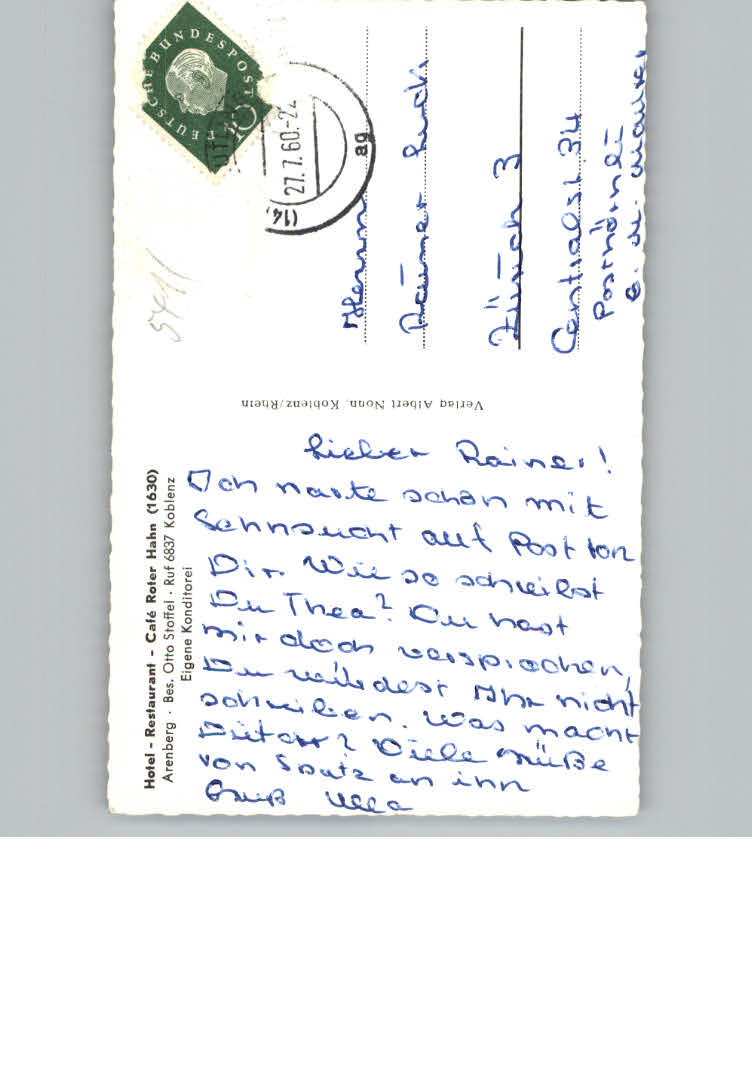 Hotel - Restaurant - Café Roter Hahn (1630)
Arenberg · Bes. Otto Stoffel · Ruf 6837 Koblenz
Eigene Konditorei
Lieber Rainer!
Ich warte schon mit
Sehnsucht auf Post von
Dir. Wie so schreibst
Du Thea? Du hast
mir doch versprochen,
Du würdest Ihr nicht
schreiben. Was macht
Dieter? Viele Grüße
von Spatz an ihn
Gruß Ulla
Verlag Albert Nonn, Koblenz/Rhein
DEUTSCHE BUNDESPOST
10
27.7.60.-2
ag
(14
5411
Herrn
Rainer
Zürich 3
Centralst. 34
Posthörnli